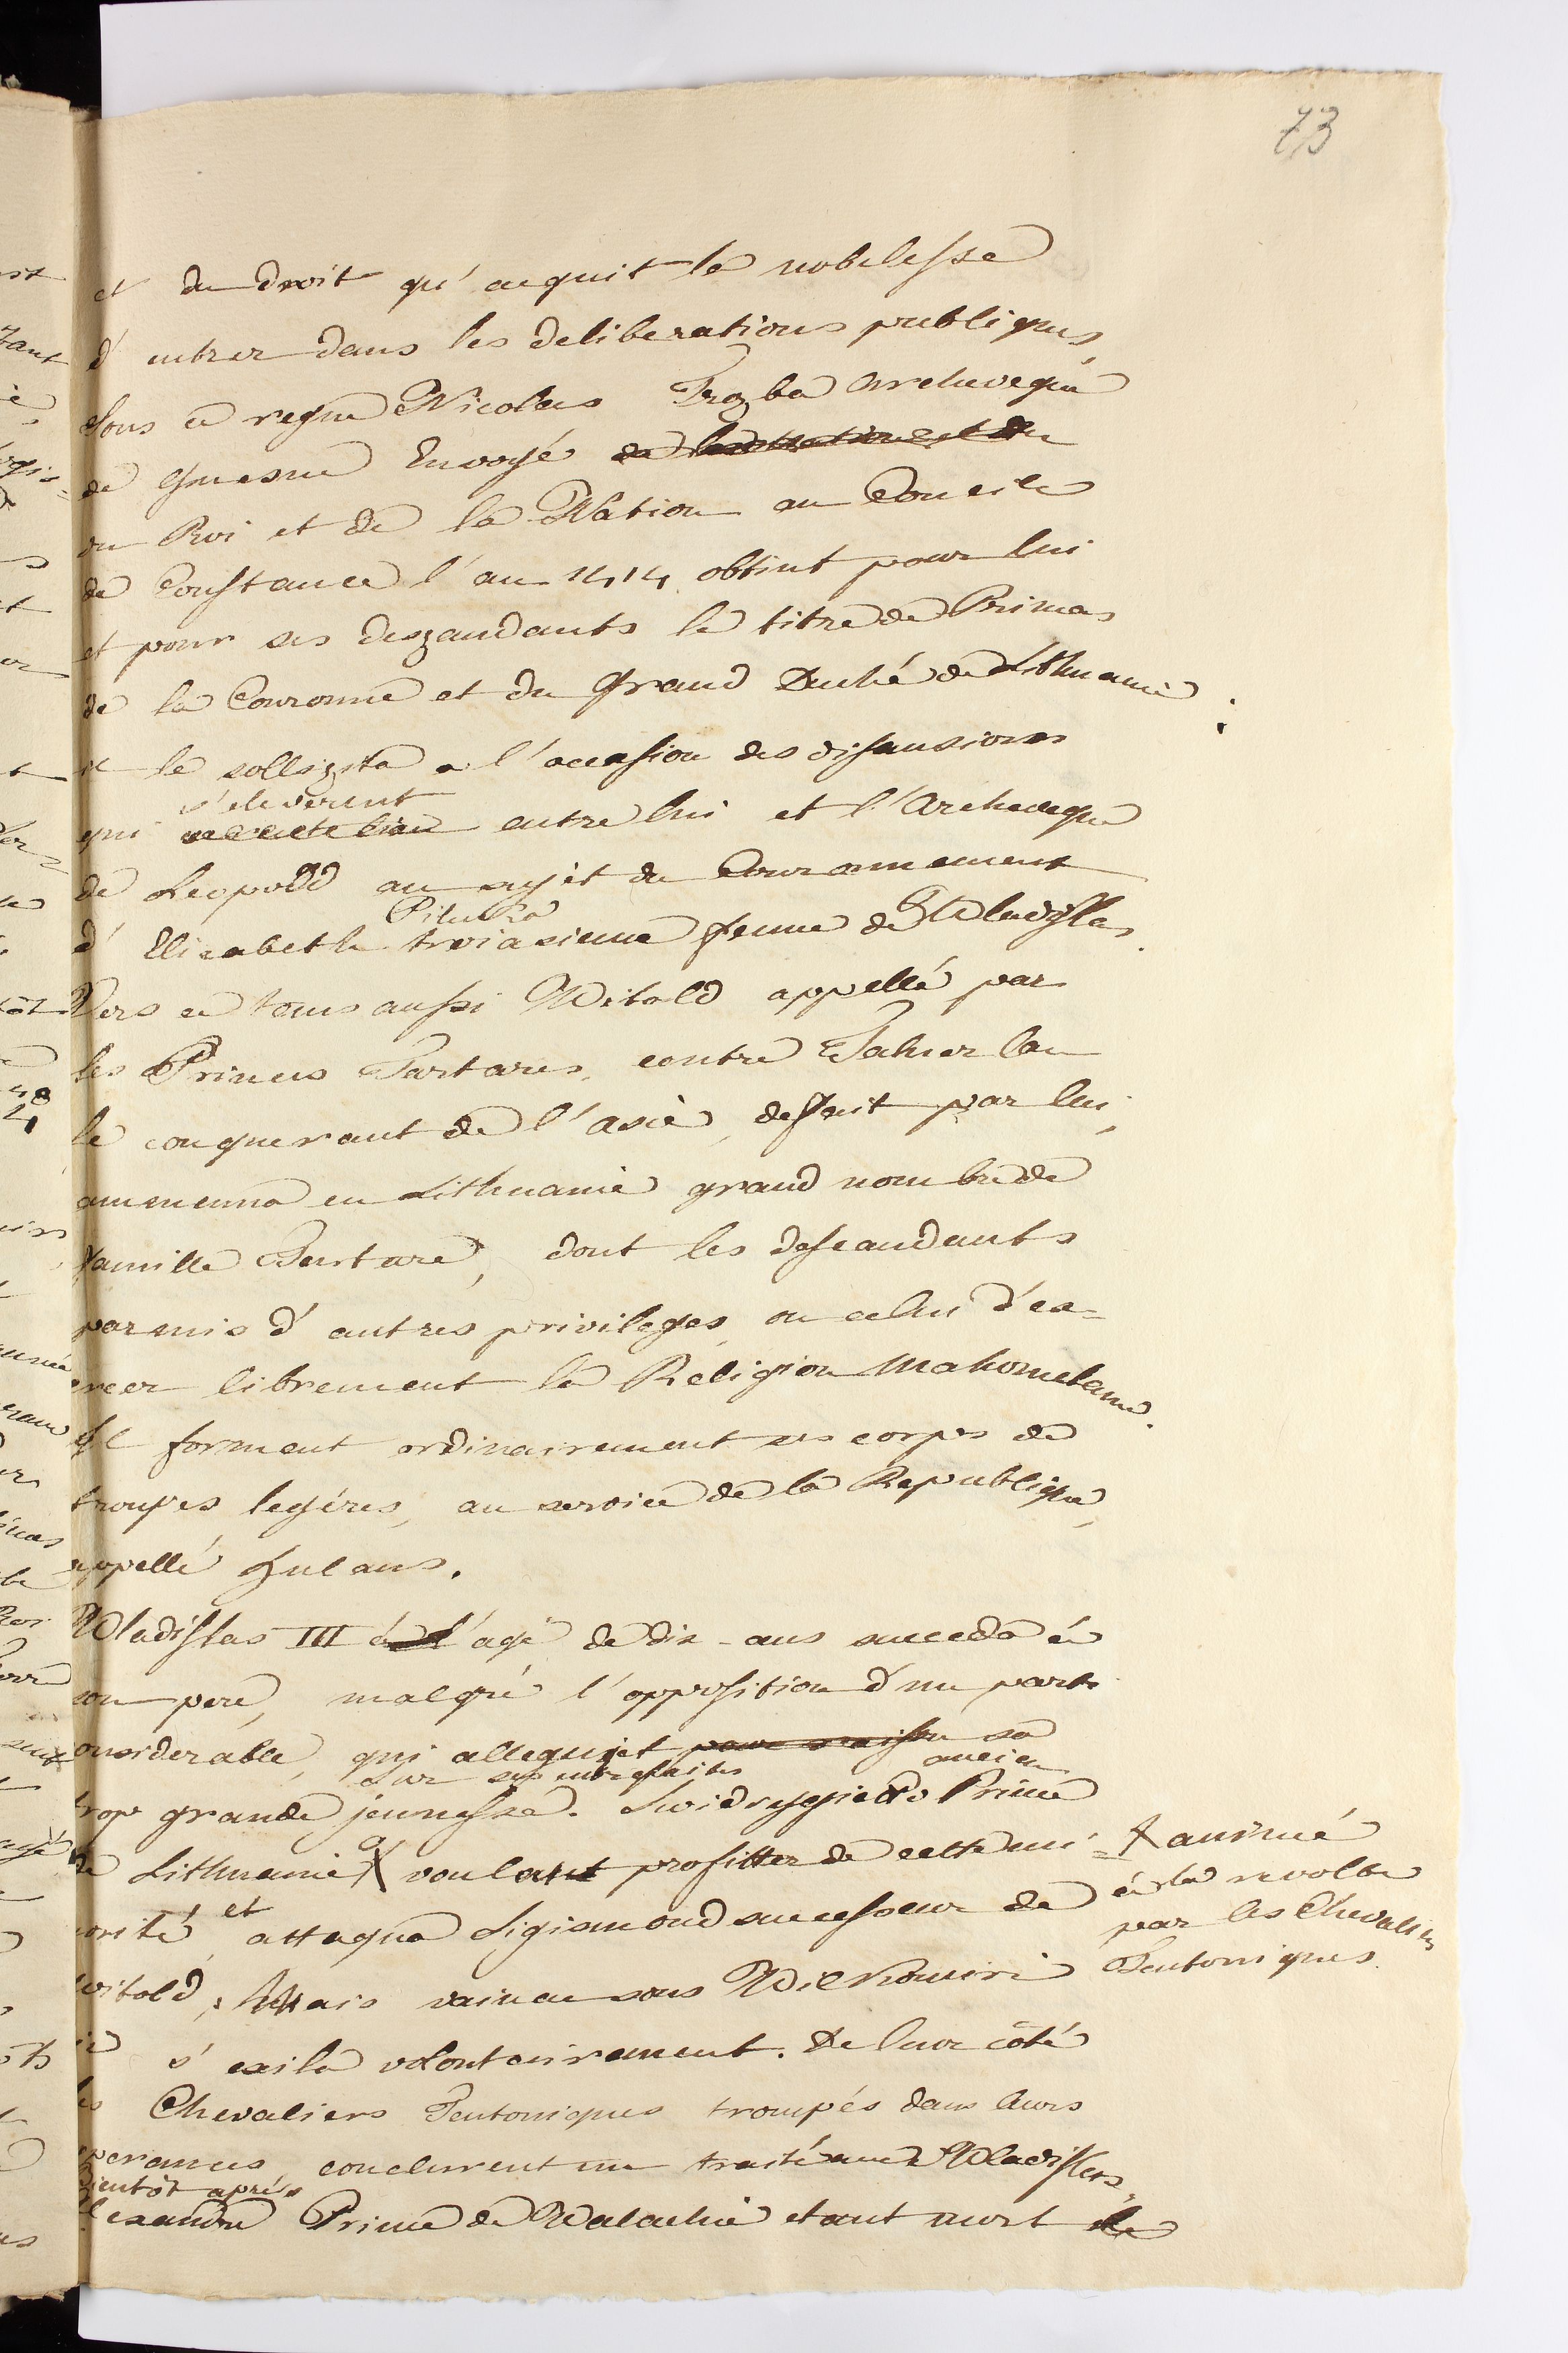 73
et du droit qu'acquit la noblesse
d'entrer dans les deliberations publiques,
Sous ce regne Nicolas Trąba Archeveque
de Gnesne Envoyé
du Roi et de la Nation au Concile
de Constance l'an 1414 obtint pour lui
et pour ses deszandants le titre de Primas
de la Couronne et du Grand Duché de Lithuanie
il le sollizita a l'occasion des disansions
s'eleverent
qui entre lui et l'Archeveque
de Leopold au sujèt du Couronnement
Pilecka
d'Elizabeth troiasieme femme de Wladislas.
Vers ce tems aussi Witold appellé par
les Princes Tartares, contre Tamerlan
le conquerant de l'asie, deffait par lui,
ammenna en Lithuanie grand nombre de
famille Tartare, dont les descandants
parmis d'autres privileges on celui d'ex-
ercer librement la Religion Mahometane.
Il forment ordinairement ses corps de
troupes legéres, au service de la Republique,
appellé Hulans.
Wladislas III à l'age de dix-ans succeda à
son pere, malgré l'opposition d'un parti
considerable, qui alleguoit pour raison sa
Sur ses entrefaites ancien
trop grande jeunesse. Swidrygiello Prince
de Lithuanie X voulant profitter de cette mi-
X animé
à la revolte
par les Chevaliers
Teutoniques.
norité, et attaqua Sigismond successeur de
Witold, Mais vaincu sous Wilkomiri
s'exila volontairement. De leur côté
les Chevaliers Teutoniques trompés dans leurs
esperances, conclurent un traité avec Wladislas,
Bientôt aprés
Alexandre Prince de Walachie etant mort